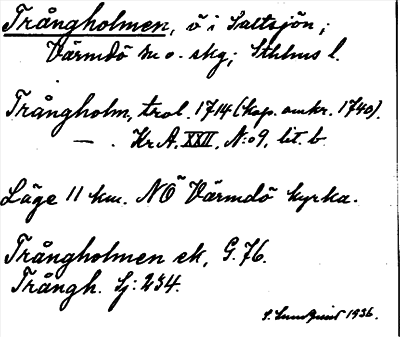 Trångholmen, ö i Saltsjön,;
Värmdö sn o. skg; Sthlms l.
Trångholm, trol. 1714 (kop. omkr. 1740).
— . Kr A. XXII, N:o 9, lit. b.
Läge 11 km. NÖ Värmdö kyrka.
Trångholmen ek, G. 76.
Trångh. Sj: 234.
S. 1936.